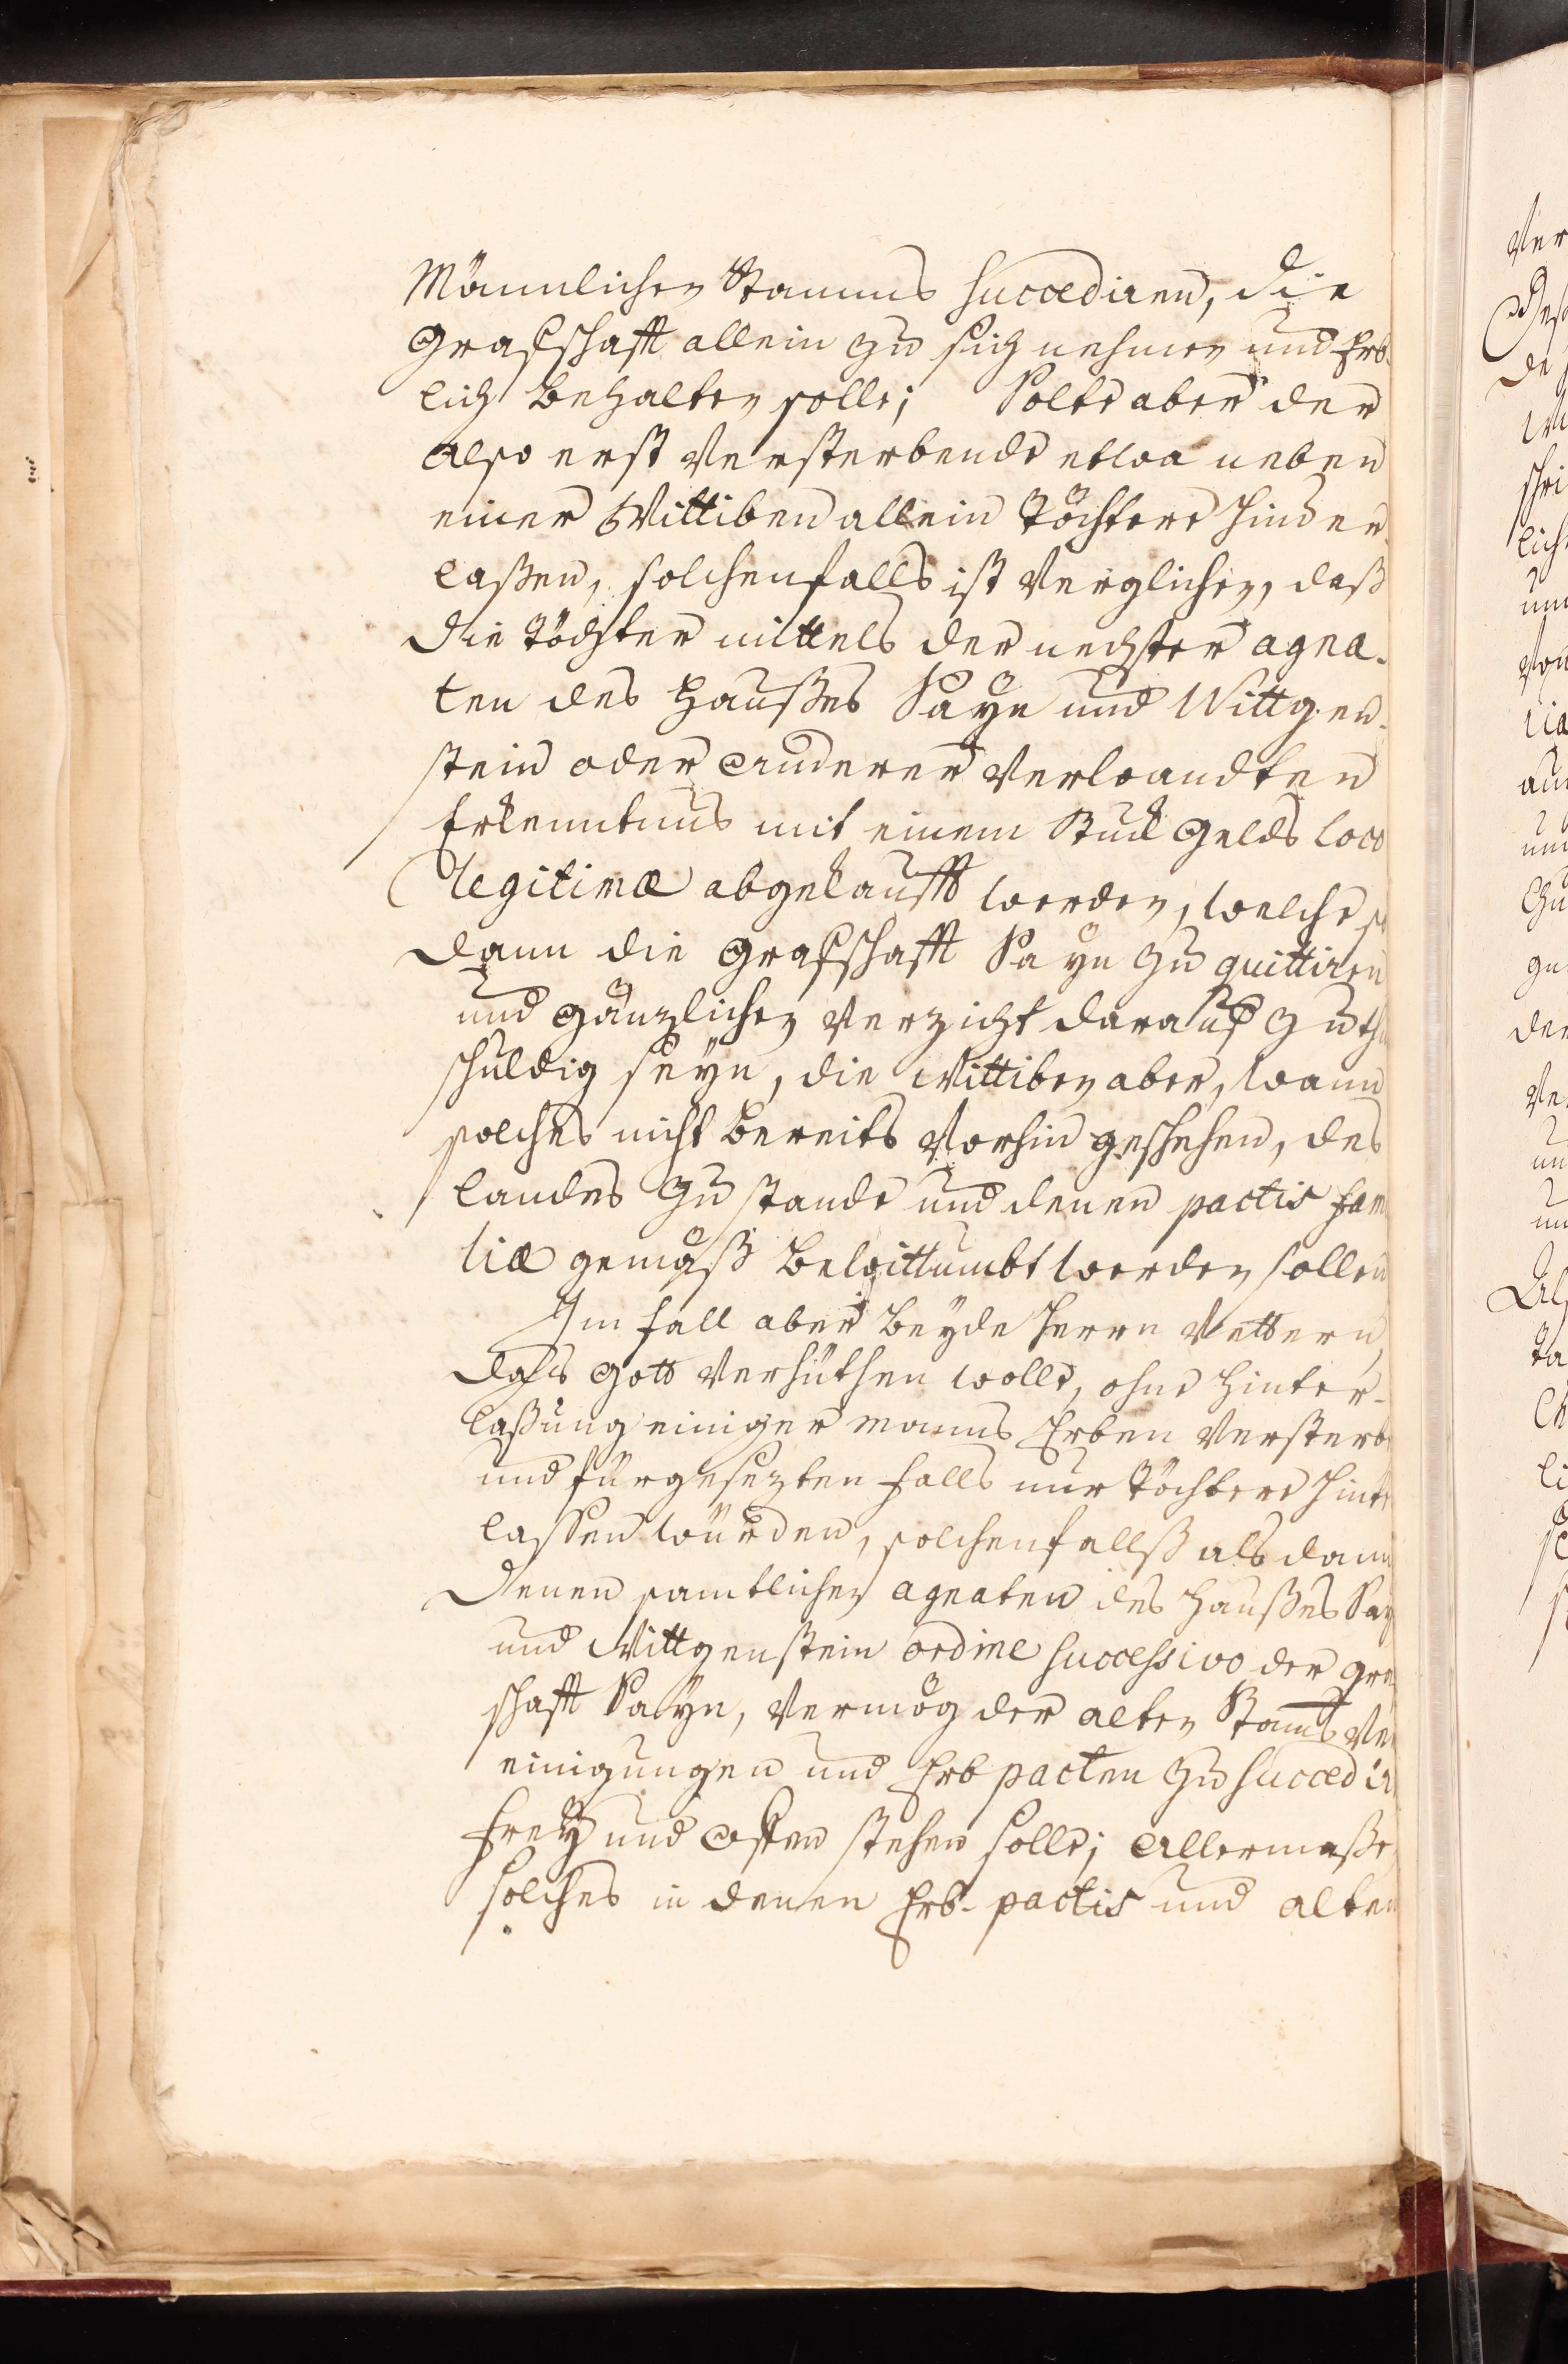 Männlichen Stamms succediren, die
Grafschafft allein zu sich nehmen und Erb-
lich behalten solle; Solte aber der
also erst Versterbende etwa neben
einer Wittiben allein Töchtere hinder-
laßen, solchenfalls ist Verglichen, daß
die Töchter mittels der nechster agna-
ten des Haußes Sayn und Wittgen-
stein oder anderer Verwandten
Erkenntnus mit einem Stuck Gelds loco
legitimæ abgekaufft werden, welche so
dann die Grafschafft Sayn zu quittiren
und gänzlichen Verzicht darauf zu th
schuldig seyn, die Wittiben aber, wann
solches nicht bereits Vorhin geschehen, des
Landes Zustande und denen pactis fam
liæ gemäß bewittumbt werden sollen
Im fall aber beyde Herrn Vettern,
das Gott Verhüthen wolle, ohne Hinter-
laßung einiger manns Erben Versterb
und fürgesezten falls nur Töchtere hinte
lassen würden, solchenfallß als dann
denen samtlichen agnaten des Haußes Say
und Wittgenstein ordine successivo der Gra
schafft Sayn, Vermög der alten Stamms Ver
einigungen und Erb pacten zu succedir
frey und offen stehen solle; Allermaße
solches in denen Erb-pactis und alten
Ver
Des
de
schri
lich
und
Von
lia
und
Zu